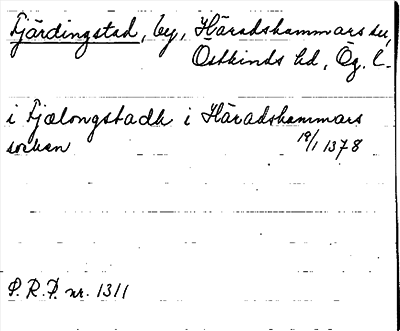 Fjärdingstad, by, Häradshammars sn,
Östkinds hd, Ög. l.
i Fjælongstadh i Häradshammars
sockan 19/1 1378
P.R.P. nr. 1311